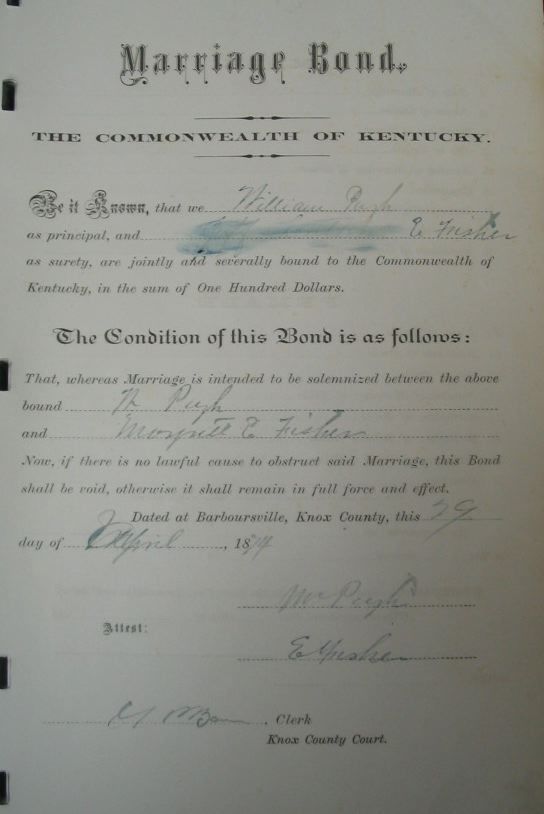 Marriage Bond.
THE COMMONWEALTH OF KENTUCKY.
Be it Known, that we William Pugh
as principal, and E Fisher
as surety, are jointly and severally bound to the Commonwealth of
Kentucky, in the sum of One Hundred Dollars.
The Condition of this Bond is as follows:
That, whereas Marriage is intended to be solemnized between the above
bound Pugh
and E Fisher
Now, if there is no lawful cause to obstruct said Marriage, this Bond
shall be void, otherwise it shall remain in full force and effect.
Dated at Barboursville, Knox County, this 29
day of April, 18
Pugh
Attest:
E Fisher
Clerk
Knox County Court.